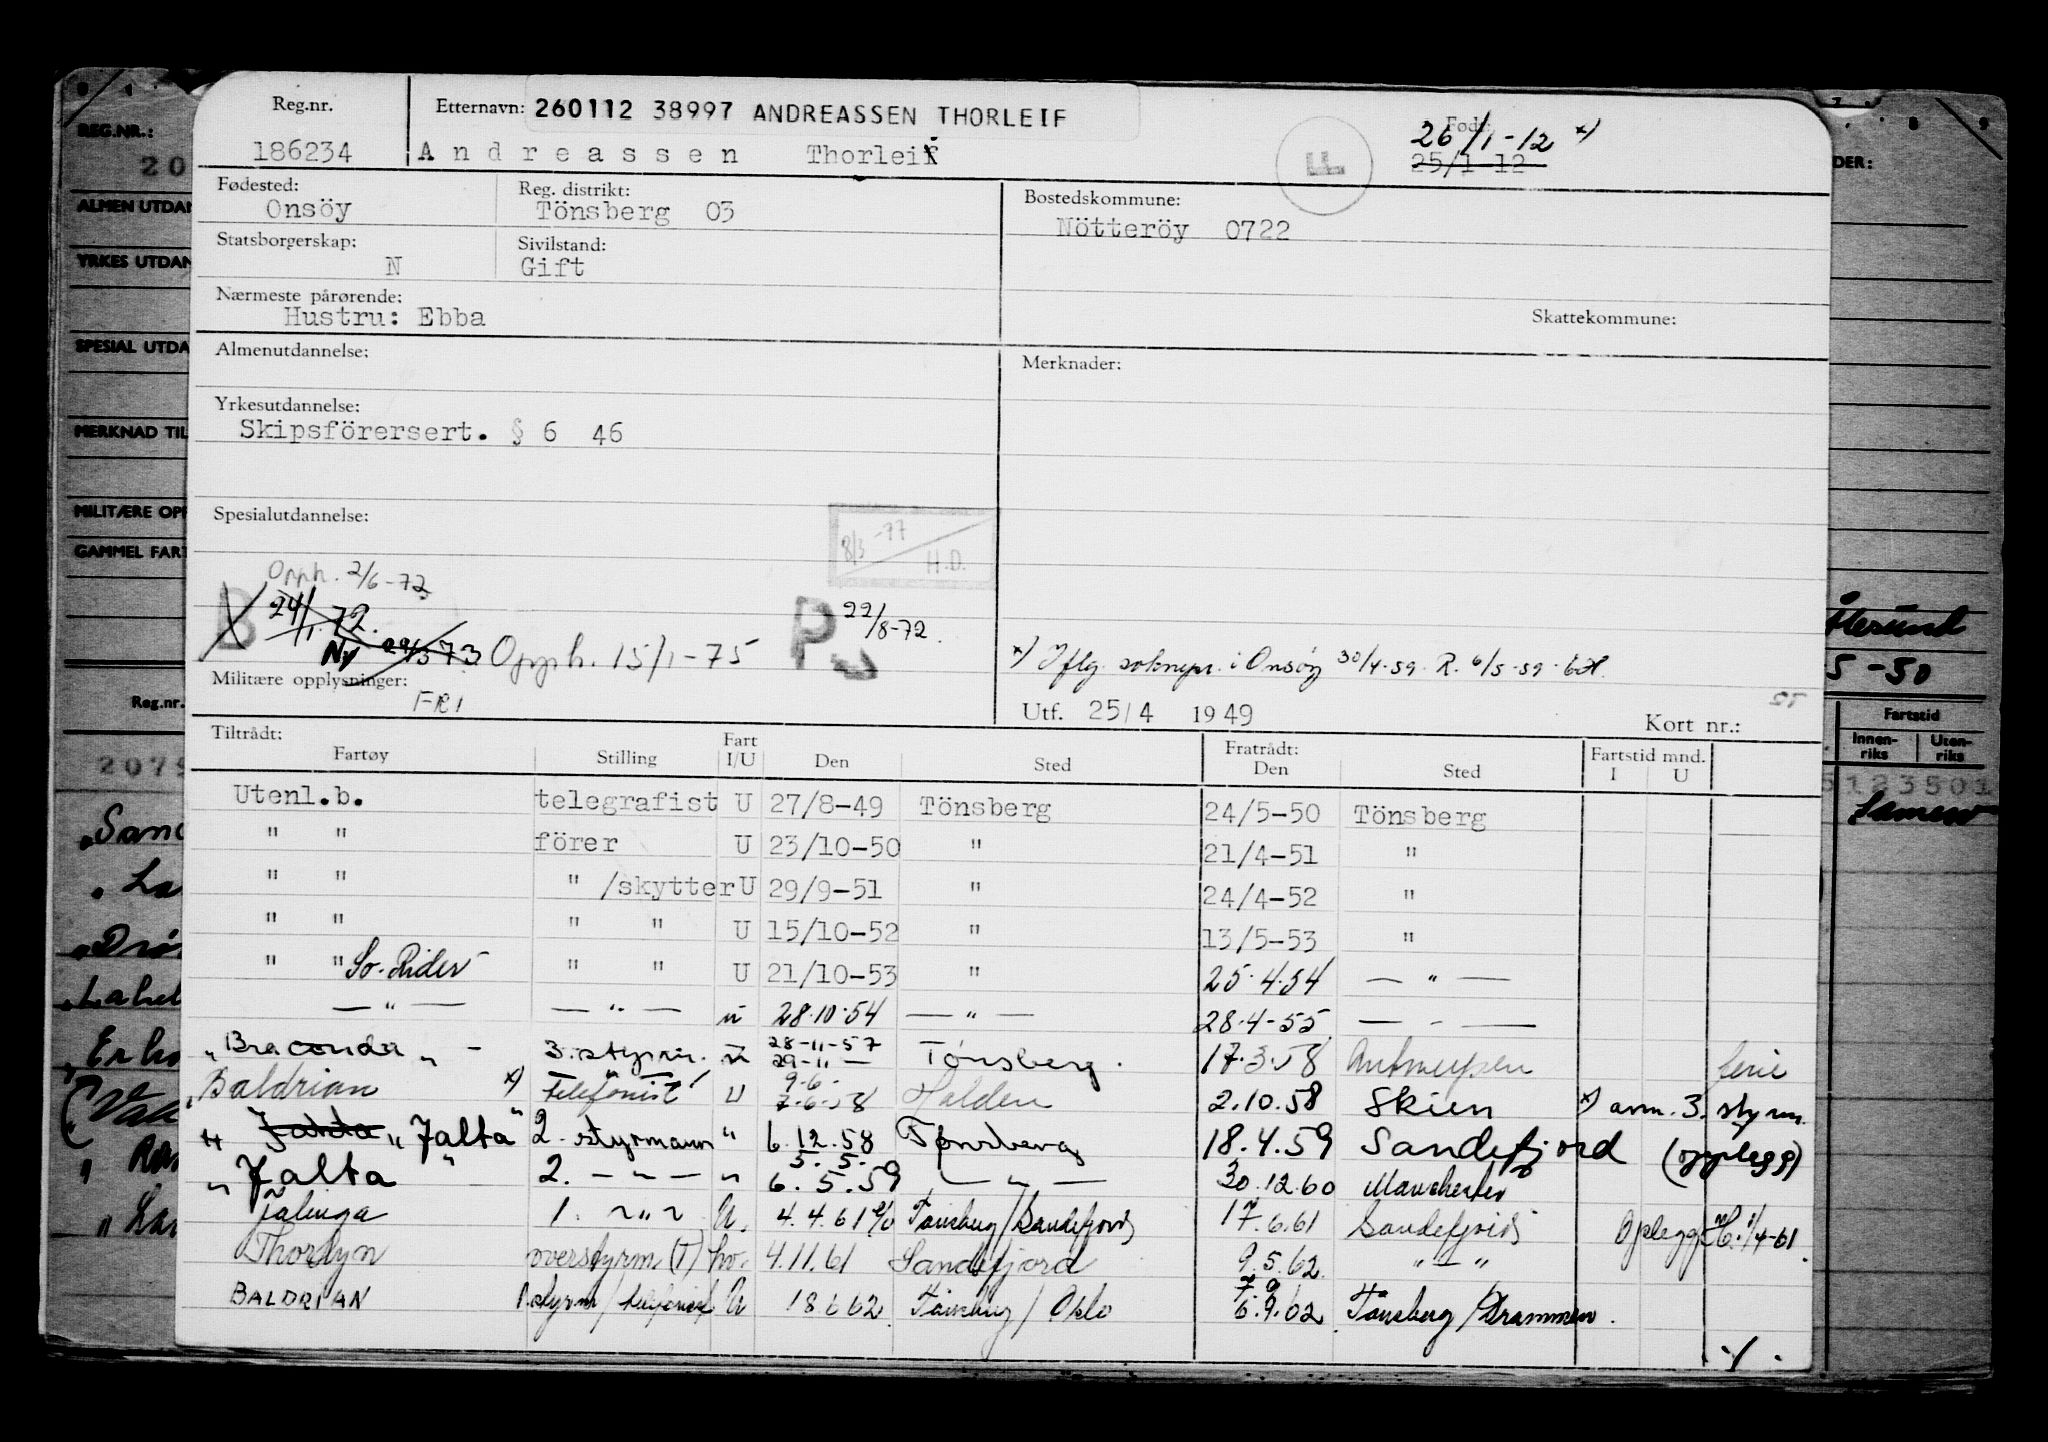 Reg.nr. Etternavn: 260112 38997 ANDREASSEN THORLEIF Født:
186234 Andreassen Thorleif 26/1-12 x)
25/1-12
FF
Fødested: Reg. distrikt: Bostedskommune:
Onsöy Tönsberg 03 Nötteröy 0722
Statsborgerskap: Sivilstand:
N Gift
Nærmeste pårørende: Skattekommune:
Hustru: Ebba
Almenutdannelse: Merknader:
Yrkesutdannelse:
Skipsförersert. § 6 46
Spesialutdannelse:
8/3 -77 H.D.
Opph. 2/6-72
B 24/1.72. P 22/8-72.
Ny 29/5 73 Opph. 15/1-75
x) Iflg. soknepr. i Onsöy 30/4-59. R. 6/5-59
Militære opplysninger:
FRI
Utf. 25/4 1949 Kort nr.:
Tiltrådt: Fratrådt: Fartstid mnd.
Fartøy Stilling Fart I/U Den Sted Den Sted I U
Utenl.b. telegrafist U 27/8-49 Tönsberg 24/5-50 Tönsberg
" " förer U 23/10-50 " 21/4-51 "
" " " /skytter U 29/9-51 " 24/4-52 "
" " " " U 15/10-52 " 13/5-53 "
" " So. Rider " " U 21/10-53 " 25.4.54 — " —
— " — — " — u 28.10.54 — " — 28.4-55 — - —
"Braconda" - 3. styrm. u 28-11-57 29-11 — Tönsberg. 17.3.58 Antwerpen ferie
"Baldrian x) telefonist U 9-6- 7-6-58 Halden 2.10.58 Skien x) anm. 3. styrm.
" Jalta "Jalta" 2. styrmann " 6.12.58 Tønsberg 18.4.59 Sandefjord (opplegg)
" Jalta " 2. — " — " 5. 5. 6. 5. 59 — " — 30.12.60 Manchester
Jalinga 1. ~"~ U. 4.4.61 Tönsberg/Sandefjord 17.6.61 Sandefjord Oplegg 1/4-61.
Thorlyn overstyrm. (T) hv. 4.11.61 Sandefjord 9.5.62 " — "
BALDRIAN 1.styrm/telefonist U 18 6 62 Tönsberg / Oslo 7 9 6.9.62 Tönsberg/Drammen.
REG.NR.:
20
ALMEN UTDAN
YRKES UTDAN
SPESIAL UTDA
MERKNAD TIL
MILITÆRE OPP
GAMMEL FART
Reg.nr.
2079
DER:
5-50
Fartstid
Innenriks Utenriks
5123501